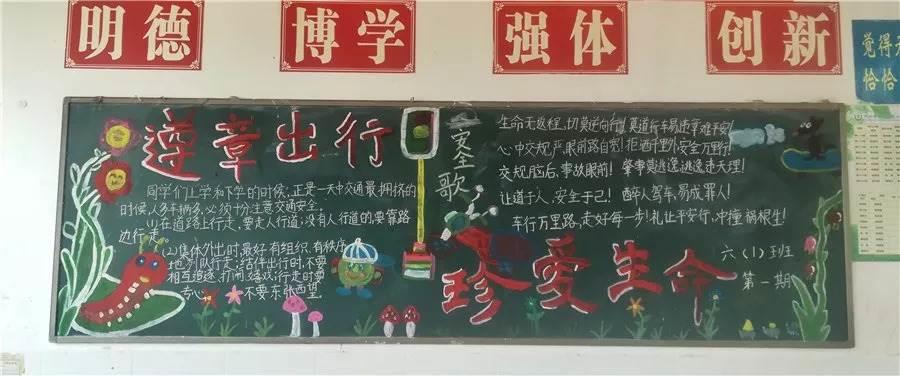 明德
博学
强体
创新
觉得
恰恰
遵章出行
同学们上学和下学的时候,正是一天中交通最拥挤的
时候,人多车辆多,必须十分注意交通安全。
(1)在道路上行走,要走人行道;没有人行道的,要靠路
边行走
(2)集体外出时,最好有组织、有秩序
地列队行走;结伴出行时,不要
相互追逐、打闹、嬉戏;行走时要
专心 不要东张西望。
安全歌
生命无返程,切莫逆向行!莫道行车易,违章难平安!
心中交规严,眼前路自宽!拒酒千里外,安全万里行!
交规脑后,事故眼前!肇事莫逃逸,逃逸走天理!
让道于人,安全于己!醉人驾车,易成罪人!
车行万里路,走好每一步!礼让平安行,冲撞祸根生!
珍爱生命
六(1)班
第一期